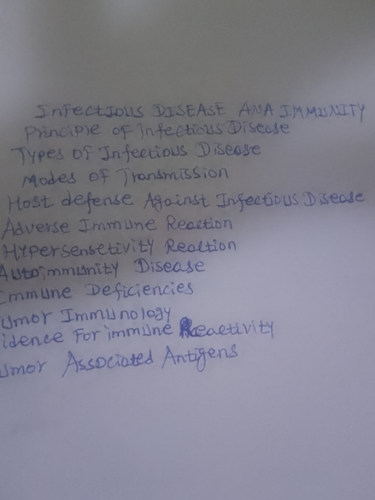 INFECTIOUS DISEASE ANA IMMUNITY
Principle of Infectious Disease
Types of Infectious Disease
Modes of Transmission
Host defense Against Infectious Disease
Adverse Immune Reaction
Hypersensetivity Reaction
Autoimmunity Disease
Immune Deficiencies
umor Immunology
idence For immune Reactivity
umor Associated Antigens